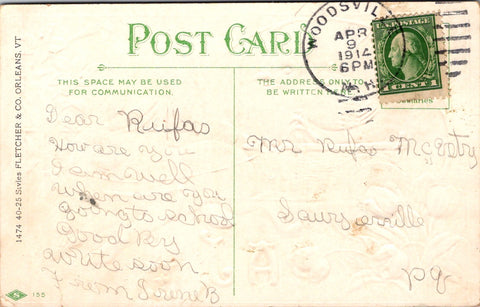 POST CARD
WOODSVILLE
APR
9
1914
6 PM
N.H.
U.S. POSTAGE
1 CENT 1
THIS SPACE MAY BE USED
FOR COMMUNICATION.
THE ADDRESS ONLY TO
BE WRITTEN HERE
Dear Rufas
How are you
I am well
when are you
going to school
Good By
write soon
From Irene B
Mr Rufas McEvtry
Sawyerville
pq
1474 40-25 Styles FLETCHER & CO. ORLEANS. VT
155